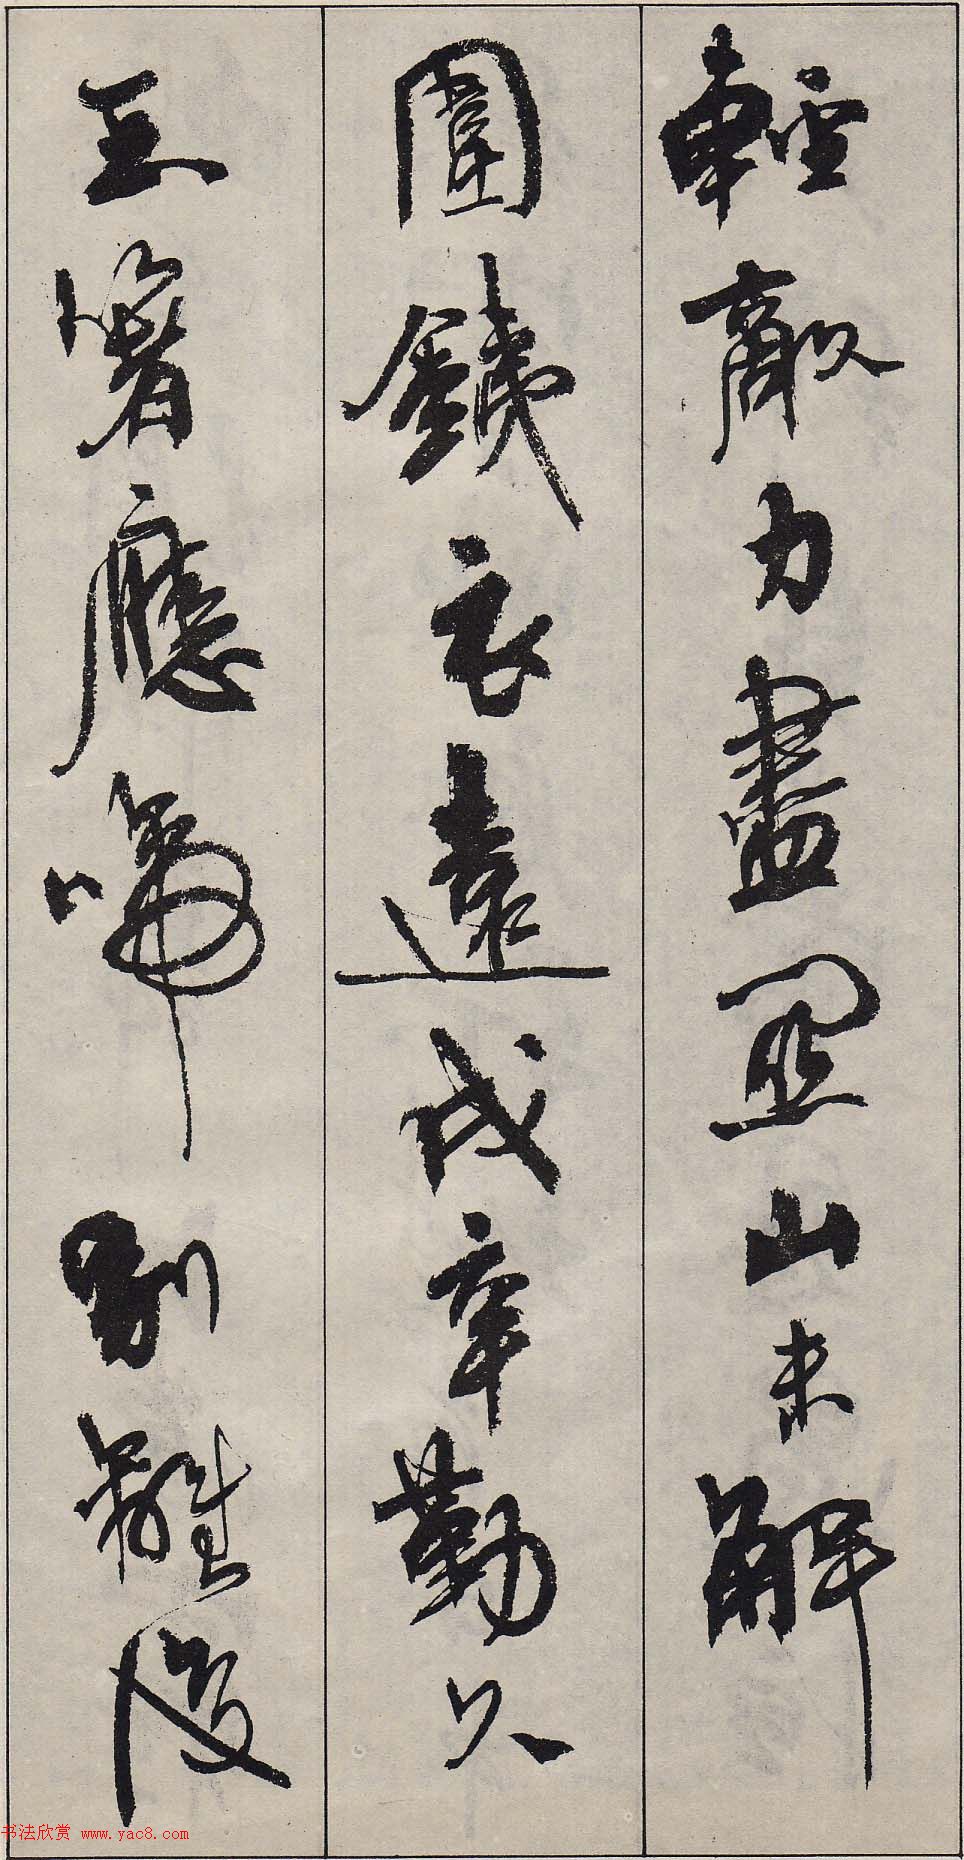 輕敵力盡関山未解
圍鐵衣遠戍辛勤久
玉箸應啼別離後
书法欣赏 www.yac8.com